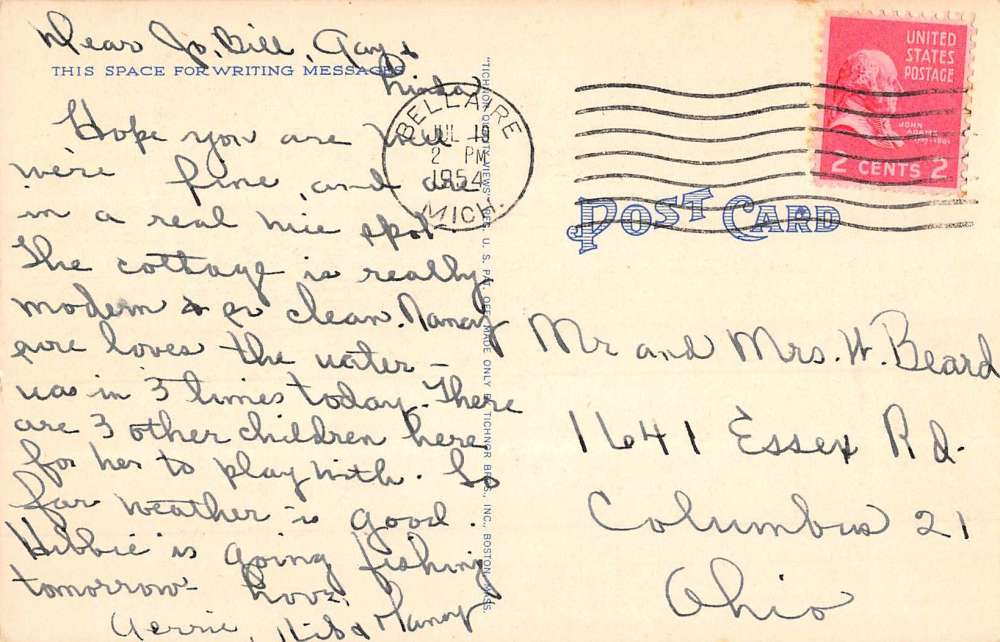 Dear Jo, Bill, Gay &
THIS SPACE FOR WRITING MESSAGES
Linda,
Hope you are well
we're fine and are
in a real nice spot.
The cottage is really
modern & so clean. Nancy
sure loves the water –
was in 3 times today. There
are 3 other children here
for her to play with. So
far weather is good.
Hibbie is going fishing
tomorrow – Love,
Gerrie, Hib & Nancy
"TICHNOR QUALITY VIEWS," REG. U. S. PAT. OFF. MADE ONLY BY TICHNOR BROS., INC., BOSTON, MASS.
BELLAIRE
JUL 19
2 PM
1954
MICH.
UNITED
STATES
POSTAGE
JOHN
ADAMS
2 CENTS 2
POST CARD
Mr and Mrs. W. Beard
1641 Essex Rd.
Columbus 21
Ohio